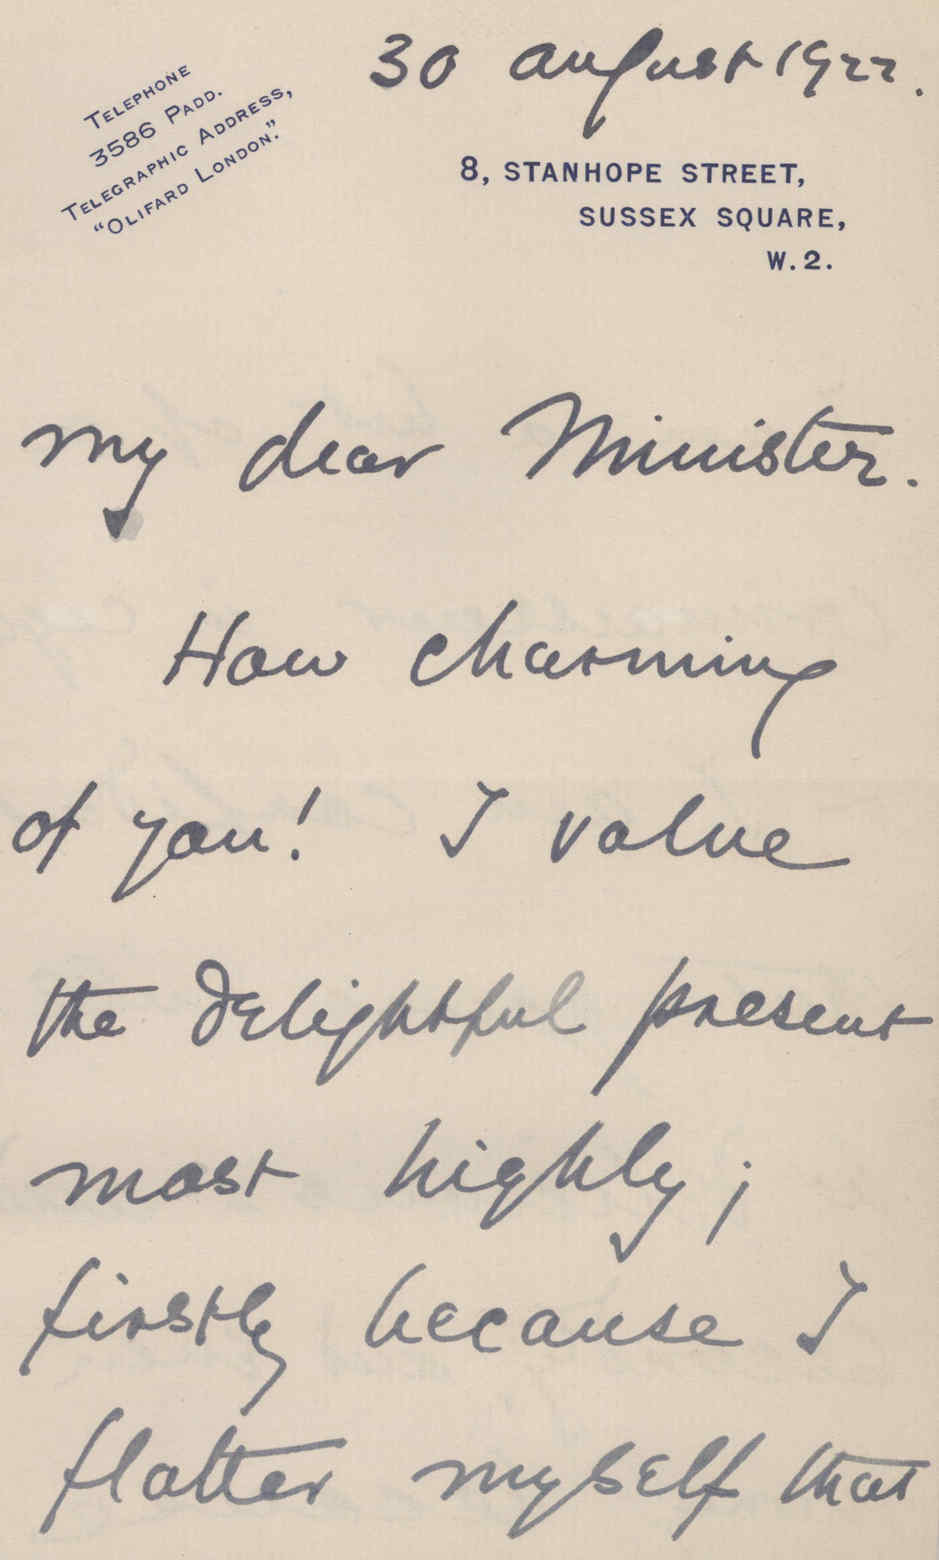 30 August 1922.
TELEPHONE
3586 PADD.
TELEGRAPHIC ADDRESS,
"OLIFARD LONDON."
8, STANHOPE STREET,
SUSSEX SQUARE,
W.2.
My dear Minister.
How charming
of you! I value
the delightful present
most highly;
firstly because I
flatter myself that